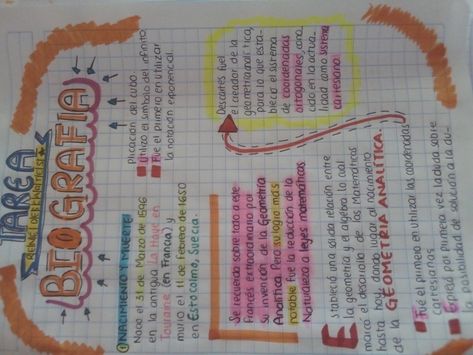 TAREA
BIOGRAFIA
① NACIMIENTO Y MUERTE:
Nació el 31 de Marzo de 1596
en la antigua La Haye en
Touraine (en Francia) y
murió el 11 de Febrero de 1650
en Estocolmo, Suecia.
Se recuerda sobre todo a este
Frances extraordinario por
su invención de la Geometría
Analítica. Pero su logro más
notable fue la reducción de la
Naturaleza a leyes matemáticas
Estableció una sólida relación entre
la geometría y el algebra lo cual
marcó el desarrollo de las Matemáticas
hasta hoy, dando lugar al nacimiento
de la GEOMETRIA ANALITICA.
Fué el primero en utilizar las coordenadas
cartesianas.
Expresa por primera vez la duda sobre
la posibilidad de solución a la du-
plicación del cubo.
Utilizo el simbolo del infinito
Fue el primero en utilizar
la notación exponencial.
Descartes fué
el creador de la
geometría analítica,
para lo que esta-
bleció el sistema
de coordenadas
ortogonales, cono
cido en la actua-
lidad como sistema
cartesiano.